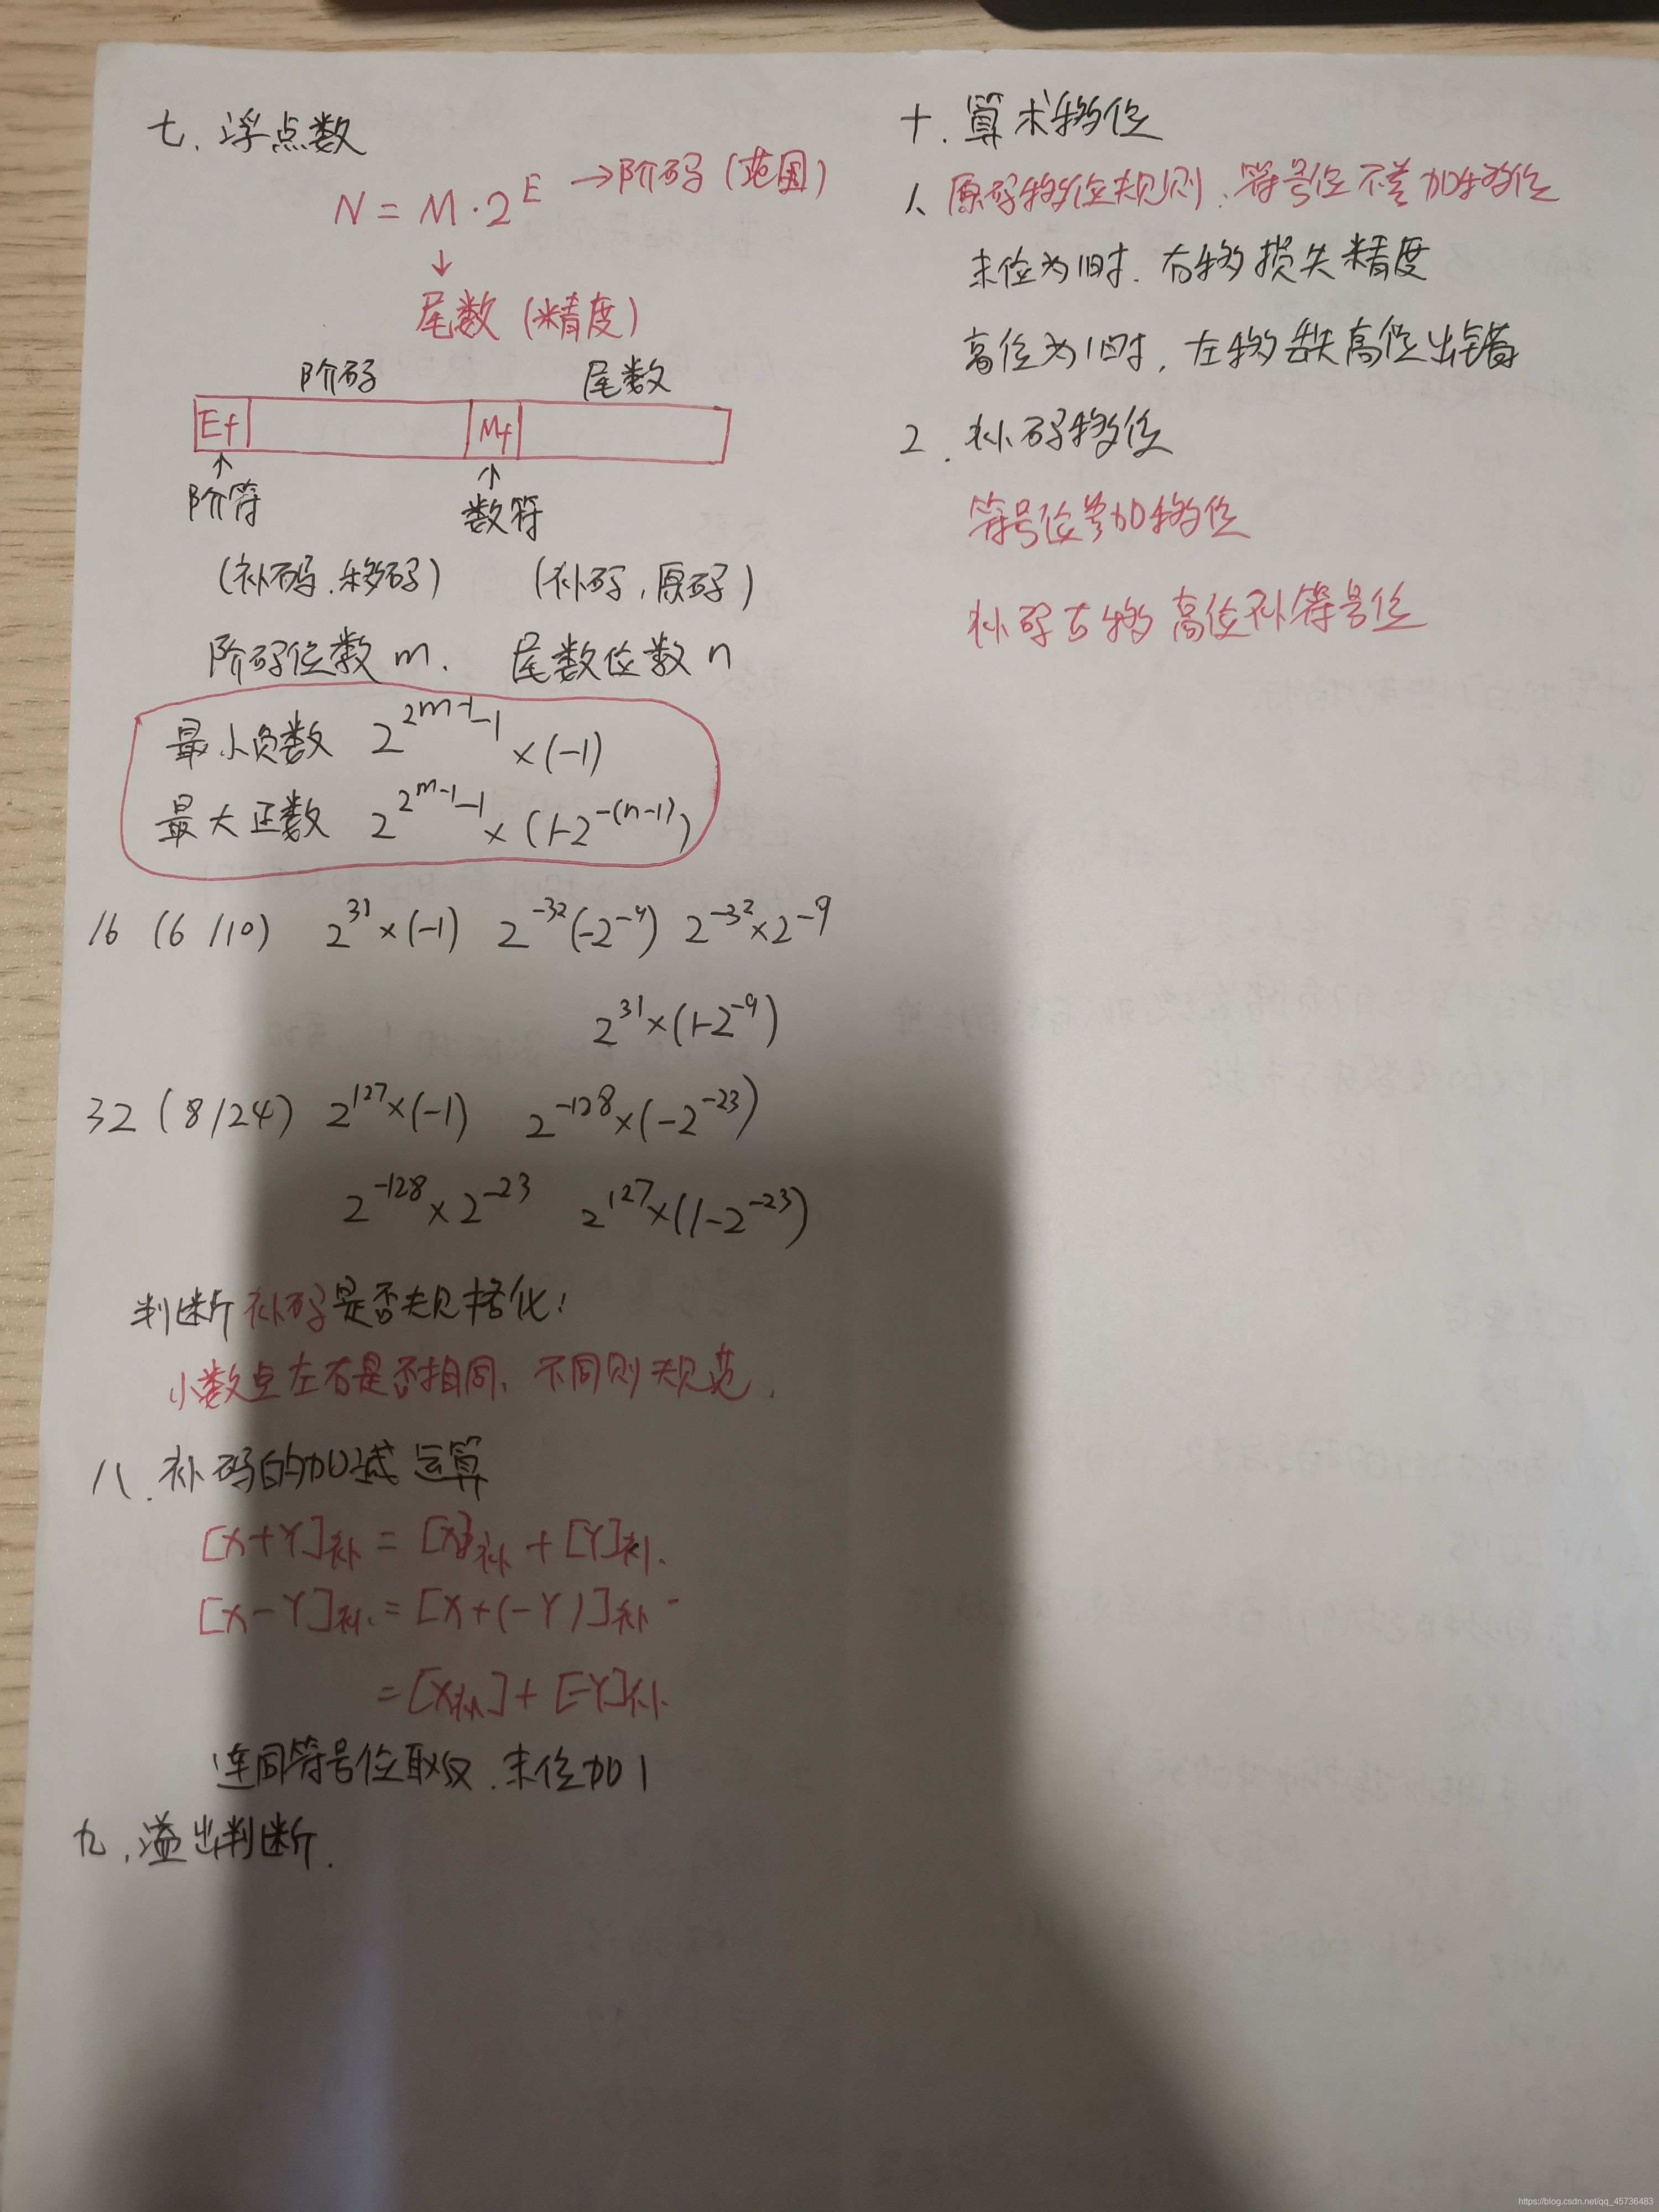 七、浮点数
N = M·2^E →阶码(范围)
↓
尾数(精度)
阶码 尾数
Ef Mf
↑ ↑
阶符 数符
(补码、移码) (补码,原码)
阶码位数m. 尾数位数n
最小负数 2^(2^(m-1)-1) ×(-1)
最大正数 2^(2^(m-1)-1) ×(1-2^-(n-1))
16 (6/10) 2^31×(-1) 2^-32(-2^-9) 2^-32×2^-9
2^31×(1-2^-9)
32 (8/24) 2^127×(-1) 2^-128×(-2^-23)
2^-128×2^-23 2^127×(1-2^-23)
判断补码是否规格化:
小数点左右是否相同、不同则规范.
八.补码的加减运算
[X+Y]补 = [X]补 + [Y]补.
[X-Y]补. = [X+(-Y)]补
=[X补]+[-Y]补.
连同符号位取反.末位加1
九.溢出判断.
十.算术移位
1、原码移位规则:符号位不参加移位
末位为1时.右移损失精度
高位为1时,左移丢失高位出错
2.补码移位
符号位参加移位
补码右移高位补符号位
https://blog.csdn.net/qq_45736483